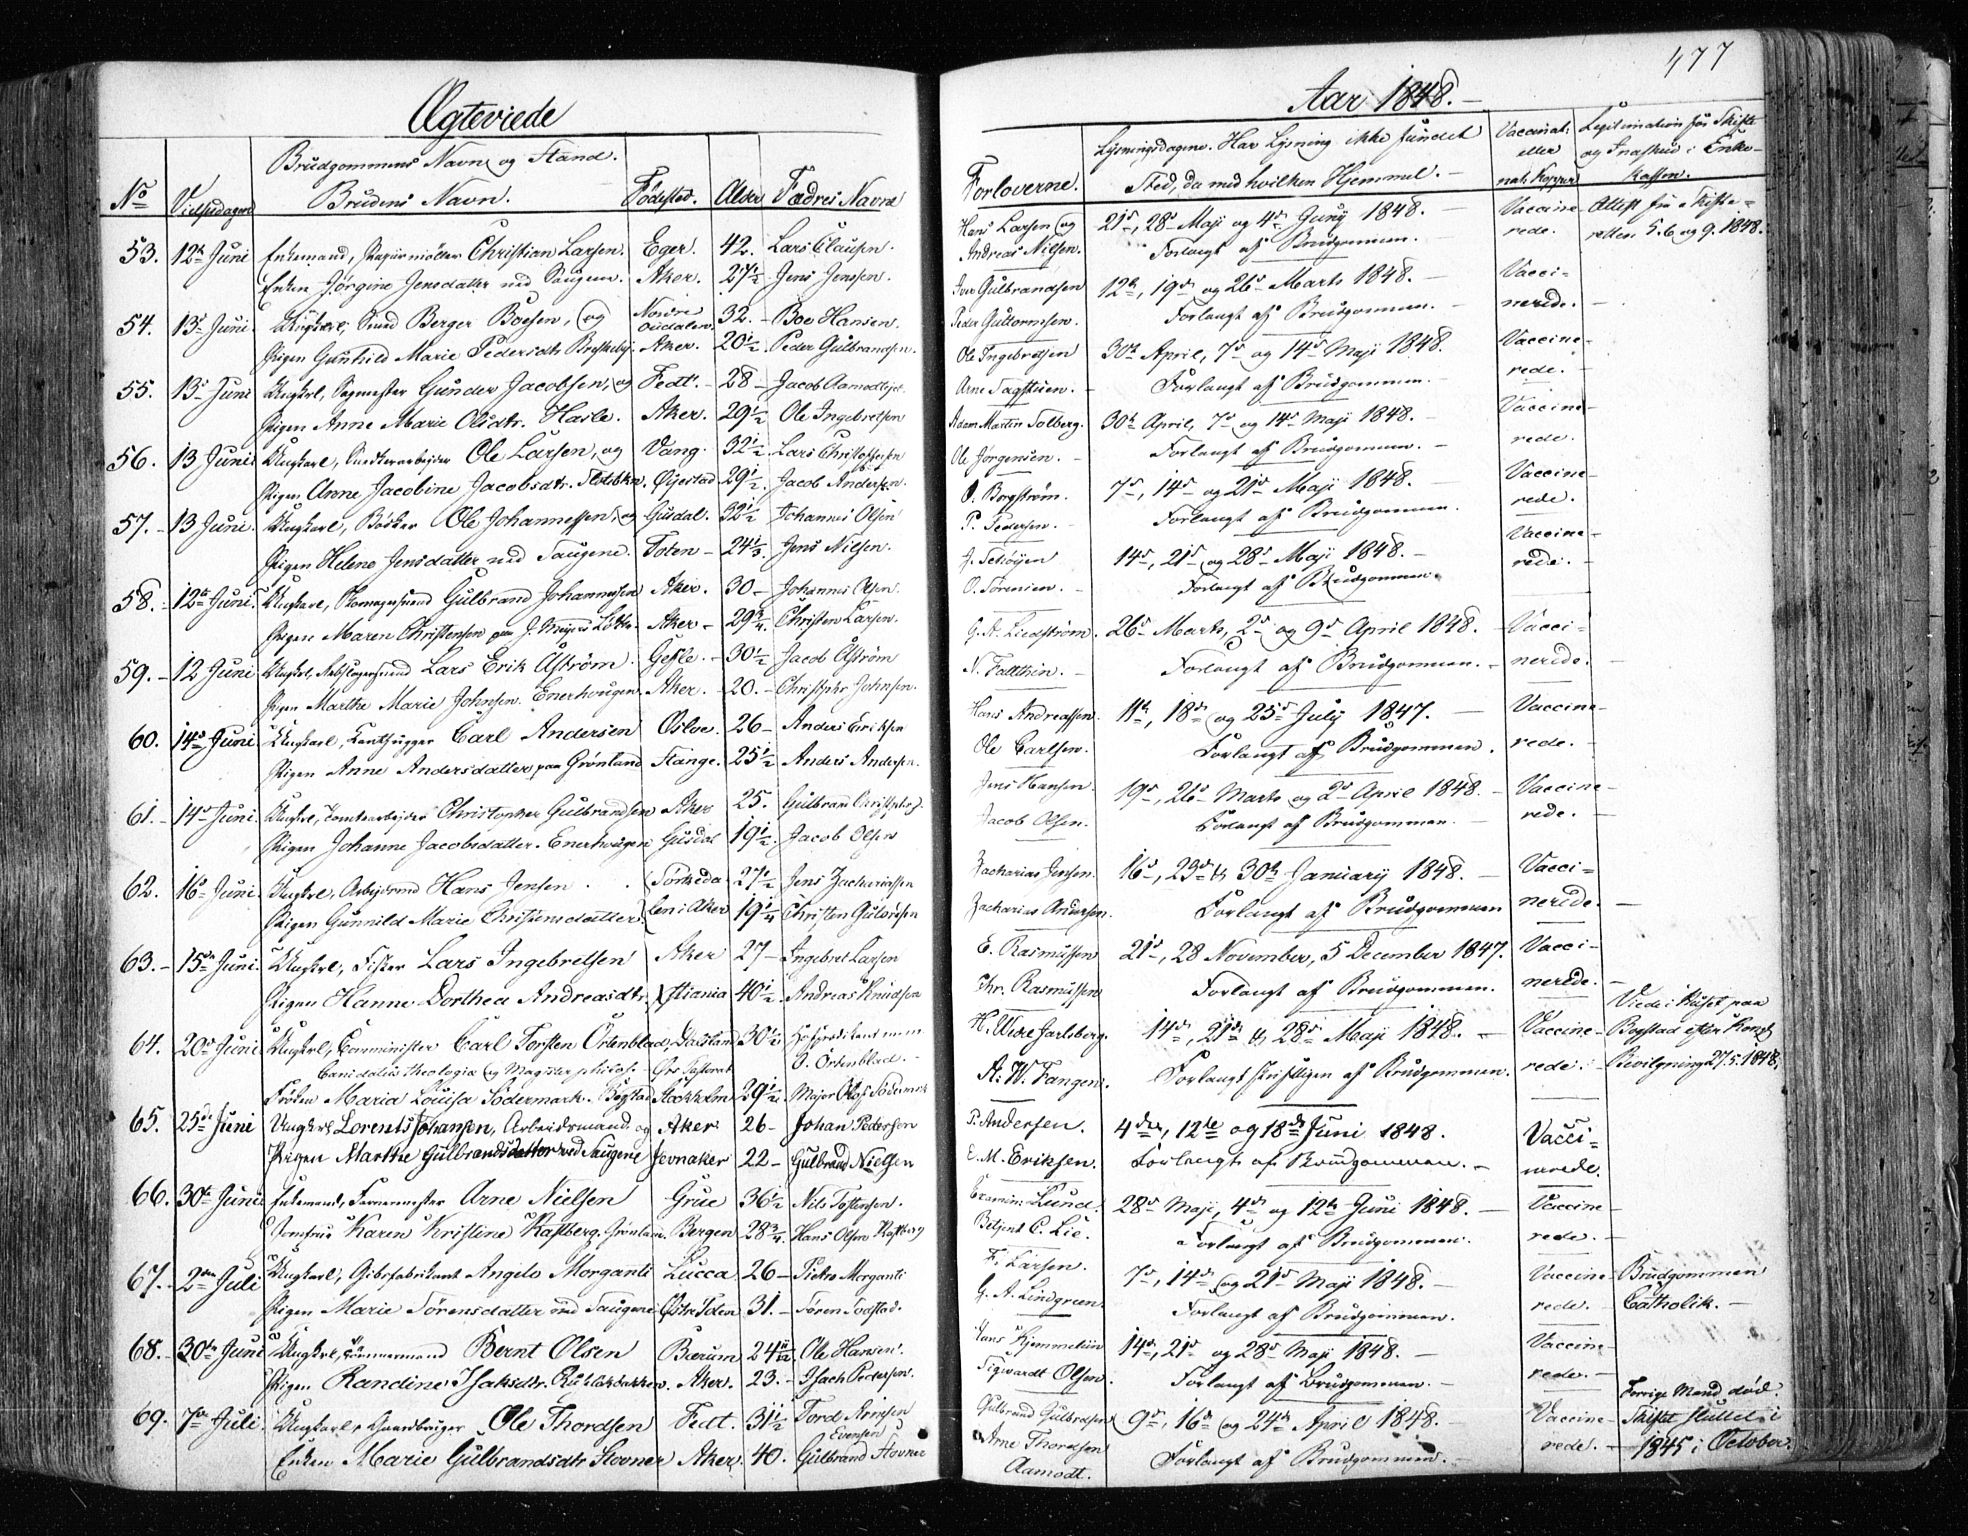 477
Ægteviede
Aar 1848.
No
Vielsesdagen
Brudgommens Navn og Stand.
Brudens Navn.
Fødested.
Alder
Fædres Navne
Forloverne.
Lysningsdagene. Har Lysning ikke fundet
Sted, da med hvilken Hjemmel.
Vaccinat.
eller
nat. Kopper
Legitimation for Skifte
og Indskud i Enke-
kassen.
53. 12te Juni Enkemand, Christian Larsen. Eger. 42. Lars Clausen. Hans Larsen og 21de, 28de Maji og 4de Juny 1848. Vaccine- Attest fra Skifte-
Enken Jørgine Jensdatter ved Saugene. Aker. 27½ Jens Jensen. Andreas Nilsen. Forlangt af Brudgommen. rede. retten 5.6 og 9. 1848.
54. 13de Juni. Ungkarl, Smed Berger Boesen, og Nordre Oudalen 32. Boe Hansen. Iver Gulbrandsen 12te, 19de og 26de Marts 1848. Vacci-
Pigen Gunhild Marie Pedersdtr. Brekkebj. Aker. 20½ Peder Gulbrandsen. Peder Guttormsen. Forlangt af Brudgommen. nerede.
55. 13de Juni Ungkrl, Sagmester Gunder Jacobsen, og Fedt. 28 Jacob Aamodtejet. Ole Ingebretsen 30te April, 7de og 14de Maji 1848. Vaccine-
Pigen Anne Marie Olsdtr. Hasle. Aker. 29½ Ole Ingebretsen Arne Sagstuen. Forlangt af Brudgommen. rede.
56. 13 Juni. Ungkarl, Ole Larsen, og Vang. 32½ Lars Christophersen Adam Martin Solberg. 30te April, 7de og 14de Maji 1848. Vaccine-
Pigen Anne Jacobine Jacobsdtr. Øijestad 29½ Jacob Andersen. Ole Jørgensen. Forlangt af Brudgommen. rede.
57. 13 Juni. Ungkarl, Bødker Ole Johannessen, og Gusdal. 32½ Johannes Olsen O. Borgstrøm. 7de, 14de og 21de Maji 1848. Vaccine-
Pigen Helene Jensdatter ved Saugene. Toten 24⅓ Jens Nielsen. P. Pedersen. Forlangt af Brudgommen. rede.
58. 12te Juni. Ungkarl, Gulbrand Johannesen Aker. 30 Johannes Olsen. J. Schøyen 14de, 21de og 28de Maji 1848. Vaccine-
Pigen Maren Christensen paa J. Meyers Løkke. Aker. 29¾ Christen Larsen. O. Sørensen. Forlangt af Brudgommen. rede.
59. 12 Juni Ungkrl, Lars Erik Åstrøm. Gefle. 30½ Jacob Åstrøm G. A. Liedstrøm. 26de Marts, 2de og 9de April 1848. Vacci-
Pigen Marthe Marie Johnsen. Enerhougen Aker. 20. Christpher Johnsen. N. Falkkin. Forlangt af Brudgommen. nerede.
60. 14de Juni Ungkarl, Canthugger Carl Andersen Osloe. 26 Anders Eriksen Hans Andreassen. 11te, 18de og 25de July 1847. Vaccine-
Pigen Anne Andersdatter paa Grønland Stange. 25½ Anders Andersen. Ole Carlsen. Forlangt af Brudgommen. rede.
61. 14de Juni. Ungkrl, Tomtearbejder Christopher Gulbrandsen Aker 25. Gulbrand Christophers. Jens Hansen. 19de, 26de Marts og 2de April 1848. Vaccine-
Pigen Johanne Jacobsdatter. Enerhougen Gusdal 19½ Jacob Olsen Jacob Olsen. Forlangt af Brudgommen. rede.
62. 16de Juni. Ungkrl, Arbejdsmd Hans Jensen Sørkeda- 27½ Jens Zachariassen Zacharias Jensen. 16de, 23de & 30te January 1848. Vacci-
Pigen Gunnild Marie Christensdatter len i Aker 19¼ Christen Gulbrsen Zacharias Andersen. Forlangt af Brudgommen nerede.
63. 15de Juni. Ungkrl, Fisker Lars Ingebretsen Aker 27 Ingebret Larsen E. Rasmussen 21de, 28 November, 5 December 1847. Vacci-
Pigen Hanne Dorthea Andreasdtr. Xstiania 40½ Andreas Knudsen Chr. Rasmussen Forlangt af Brudgommen. nerede.
64. 20de Juni Ungkrl, Comminister Carl Torsten Örtenblad, Dalsland 30½ Hofpredikanten H. Wedel Jarlsberg. 14de, 21de & 28de Maji 1848. Vaccine- Viede i Huset paa
Candidatus theologiæ og Magister philos. Gøs Pastorat O. Örtenblad. A. W. Fangen. Forlangt skriftligen af Brudgommen. rede. Bogstad efter Kongl.
Frøken Maria Louisa Södermark. Bogstad Stockholm 29½ Major Olof Södermark Bevilgning 27.5.1848.
65. 25de Juni Ungkrl Lorents Johansen, Arbeidsmand og Aker 26 Johan Pedersen P. Andersen. 4de, 12te og 18de Juni 1848. Vacci-
Pigen Marthe Gulbrandsdatter ved Saugene Jevnaker 22 Gulbrand Nielsen E. M. Eriksen. Forlangt af Brudgommen. nerede.
66. 30te Juni Enkemand, Farvemester Arne Nielsen Grue 36½ Nils Tostensen. Examin. Lund. 28de Maji, 4de og 12te Juni 1848. Vaccine-
Jomfrue Karen Kristine Rastberg. Grønland. Bergen 28¾ Hans Olsen Rastberg Betjent C. Lie. Forlangt af Brudgommen. rede.
67. 2den Juli Ungkarl, Gibsfabrikant Angelo Morganti Lucca 26 Pietro Morganti F. Larsen. 7de, 14de og 21de Maji 1848. Vaccine- Brudgommen
Pigen Marie Sørensdatter ved Saugene Østre Toten 31. Søren Sodstad. G. A. Lindgreen. Forlangt af Brudgommen. rede. Catholik.
68. 30te Juni Ungkrl, Tømmermand Bernt Olsen Bærum 24 11/12 Ole Hansen. Hans Hjemmeliin 14de, 21de og 28de Maji 1848. Vaccine-
Pigen Randine Isaksdtr. Ruhlebakken. Aker. 23. Isach Pedersen. Sigvardt Olsen. Forlangt af Brudgommen. rede.
69. 7de Juli. Ungkarl, Gaardbruger Ole Thordsen Fedt. 31½ Tord Arnesen Evensen Gulbrand Gulbrandsen 9de, 16de og 24de April 1848. Vaccine- Forrige Mand død.
Enken Marie Gulbrandsdtr Stovner Aker 40. Gulbrand Stovner Arne Thordsen Aamodt. Forlangt af Brudgommen. rede. Skiftet sluttet i
1845 i October.